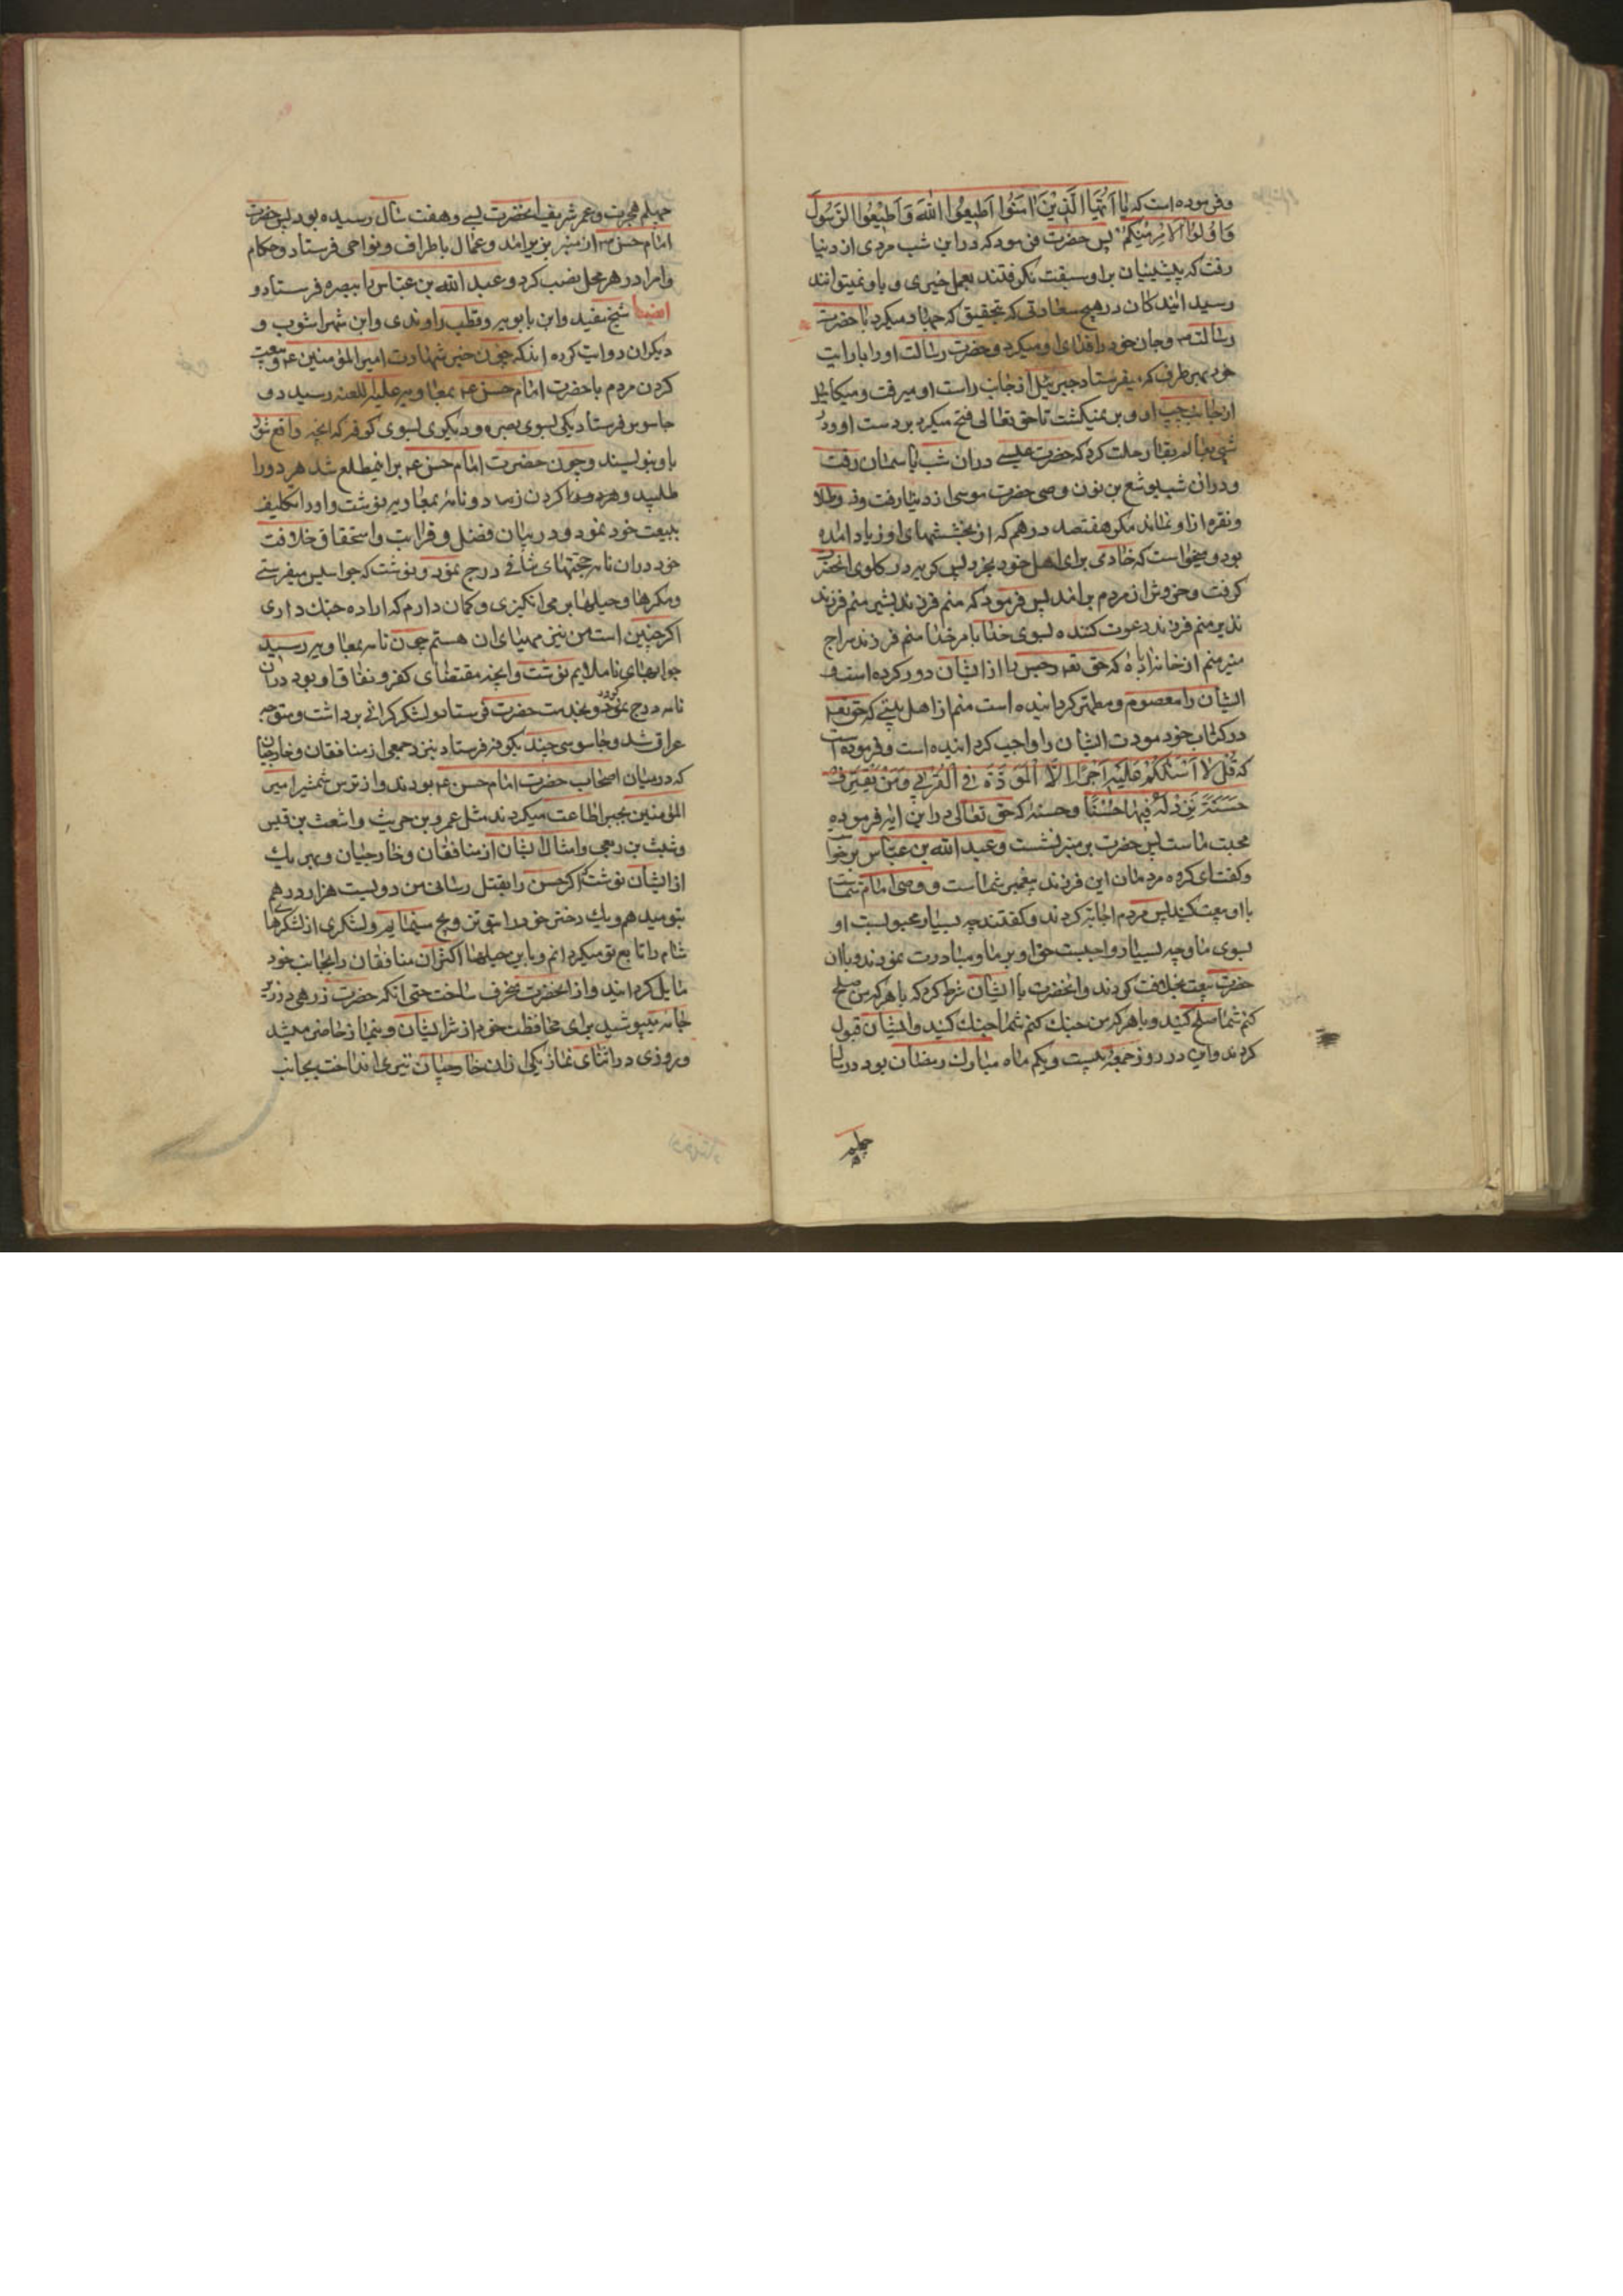 وفرموده است که یا اَیُّهَا الَّذِیْنَ اٰمَنُوا اَطِیعُوا اللهَ وَاَطِیْعُوا الرَّسُولَ
وَاُولُوا الْاَمْرِ مِنْکُمْ پس حضرت فرمود که دراین شب مردی از دنیا
رفت که پیشینیان براو سبقت نکرفتند بعمل خیری و باو نمیتوانند
رسید ایندکان درهیچ سعادتی که بتحقیق که جهاد میکرد با حضرت
رسالت ص وجان خود را فدای او میکرد و حضرت رسالت اورا با رایت
خود بهر طرف که میفرستاد جبرئیل از جانب راست او میرفت و میکائیل
از جانب چپ او و بر نمیکشت تا حق تعالی فتح میکرد بر دست او ودر
شبی بعالم بقا رحلت کرد که حضرت عیسی دران شب باسمان رفت
ودران شب یوشع بن نون وصی حضرت موسی از دنیا رفت و طلا
ونقره از او نماند مکر هفتصد درهم که از بخششهای او زیاد امده
بود ومیخواست که خادمی برای اهل خود بخرد پس کریه در کلوی انحضرت
کرفت وخروش از مردم برامد پس فرمود که منم فرزند بشیر منم فرزند
نذیر منم فرزند دعوت کننده بسوی خدا بامر خدا منم فرزند سراج
منیر منم از خانه اباده که حق تعه رجس را از ایشان دور کرده است و
ایشان را معصوم و مطهر کردانیده است منم از اهل بیتی که حق تعه
در کتاب خود مودت ایشان را واجب کردانیده است و فرموده است
که قُلْ لَا اَسْئَلُکُمْ عَلَیْهِ اَجْرًا اِلَّا الْمَوَدَّةَ فِی الْقُرْبٰی وَمَنْ یَقْتَرِفْ
حَسَنَةً نَزِدْ لَهُ فِیهَا حُسْنًا وحسنه که حق تعالی دراین ایه فرموده
محبت ماست پس حضرت بر منبر نشست و عبد الله بن عباس برخوا
وکفت ای کروه مردمان این فرزند پیغمبر شماست و وصی امام شماست
با او بیعت کنید پس مردم اجابه کردند و کفتند چه بسیار محبوبست او
بسوی ما وچه بسیار واجبست حق او بر ما و مبادرت نمودند و باان
حضرت بیعت بخلافت کردند وانحضرت با ایشان شرط کرد که با هرکه من صلح
کنم شما صلح کنید و با هرکه من جنک کنم شما جنک کنید و ایشان قبول
کردند واین در روز جمعه بیست ویکم ماه مبارک رمضان بود در سال
چهلم
چهلم هجرت و عمر شریف انحضرت بسی وهفت سال رسیده بود پس حضرت
امام حسن ع از منبر بزیر امد و عمال باطراف و نواحی فرستاد و حکام
وامرا در هر محل نصب کرد و عبد الله بن عباس را ببصره فرستاد و
ایضا شیخ مفید وابن بابویه و قطب راوندی وابن شهراشوب و
دیکران روایت کرده اند که چون خبر شهادت امیرالمؤمنین ع و بیعت
کردن مردم با حضرت امام حسن ع بمعاویه علیه اللعنه رسید دو
جاسوس فرستاد یکی بسوی بصره و دیکری بسوی کوفه که انچه واقع شود
باو بنویسند و چون حضرت امام حسن ع برا نمطلع شد هر دو را
طلبید و کردن زد و نامه بمعاویه نوشت و اورا تکلیف
ببیعت خود نمود و در بیان فضل و قرابت و استحقاق خلافت
خود دران نامه حجتهای شافی درج نمود و نوشت که جواسیس میفرستی
ومکرها و حیلها بر می انکیزی و کمان دارم که اراده جنک داری
اکر چنین است من نیز مهیای ان هستم چون نامه بمعاویه رسید
جوابهای ناملایم نوشت وانچه مقتضای کفر و نفاق او بود دران
نامه درج نمود و بخدمت حضرت فرستاد و لشکر کرانی برداشت و متوجه
عراق شد و جاسوسی چند بکوفه فرستاد بنزد جمعی از منافقان و خارجیان
که درمیان اصحاب حضرت امام حسن ع بودند و از ترس شمشیر امیر
المؤمنین بجبر اطاعت میکردند مثل عمرو بن حریث و اشعث بن قیس
وشبث بن ربعی وامثال ایشان از منافقان و خارجیان و بهر یک
از ایشان نوشت که اکر حسن را بقتل رسانی من دویست هزار درهم
بتو میدهم و یک دختر خود را بتو تزویج مینمایم و لشکری از لشکرهای
شام را تابع تو میکردانم و باین حیلها اکثران منافقان را بجانب خود
مایل کردانید و از انحضرت منحرف ساخت حتی انکه حضرت زرهی در زیر
جامه میپوشید برای محافظت خود از شر ایشان و بنماز حاضر میشد
وروزی در اثنای نماز یکی از ان خارجیان تیری انداخت بجانب